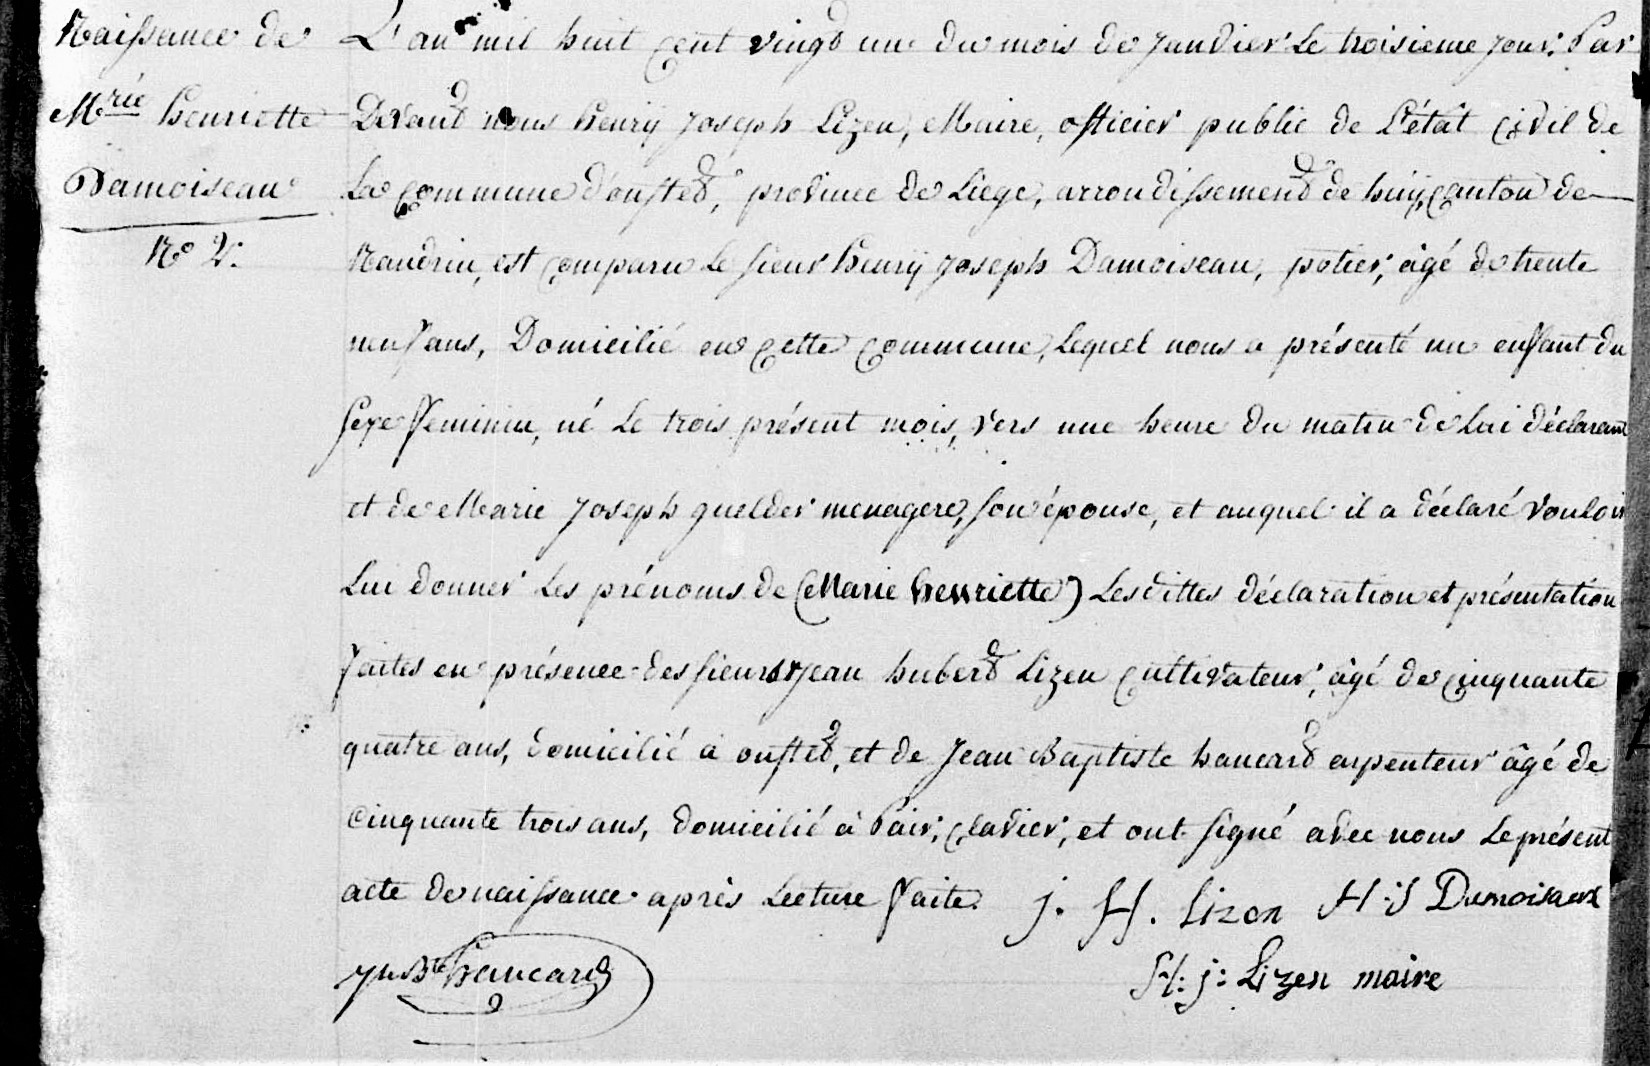 Naissance de
Mrie henriette
Damoiseau
No 2.
L'an mil huit cent vingt un du mois de janvier le troisieme jour. Par
Devant nous henrÿ joseph Lizen, Maire, officier public de L'état civil de
La commune d'ouffet, province de Liege, arrondissement de huÿ, canton de
Nandrin, est comparu le sieur henrÿ joseph Damoiseau, potier, âgé de trente
neuf ans, Domicilié en cette commune, lequel nous a présenté un enfant du
sexe feminin, né le trois présent mois, vers une heure du matin de lui déclarant
et de Marie joseph guelder menagere, son épouse, et auquel il a déclaré vouloir
Lui donner les prénoms de (Marie henriette) Lesdittes déclaration et présentation
faites en présence des sieurs jean hubert Lizen cultivateur, âgé de cinquante
quatre ans, domicilié à ouffet, et de Jean Baptiste hancart arpenteur âgé de
cinquante trois ans, domicilié à Pair, clavier, et ont signé avec nous le présent
acte de naissance après lecture faite. j. H. Lizen H:J Damoisaux
Jn Bte hancard H: j: Lizen maire